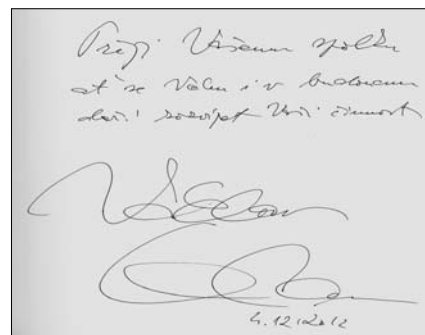 Přeji Vašemu spolku
ať se Vám i v budoucnu
daří rozvíjet Vaši činnost
4.12.2012